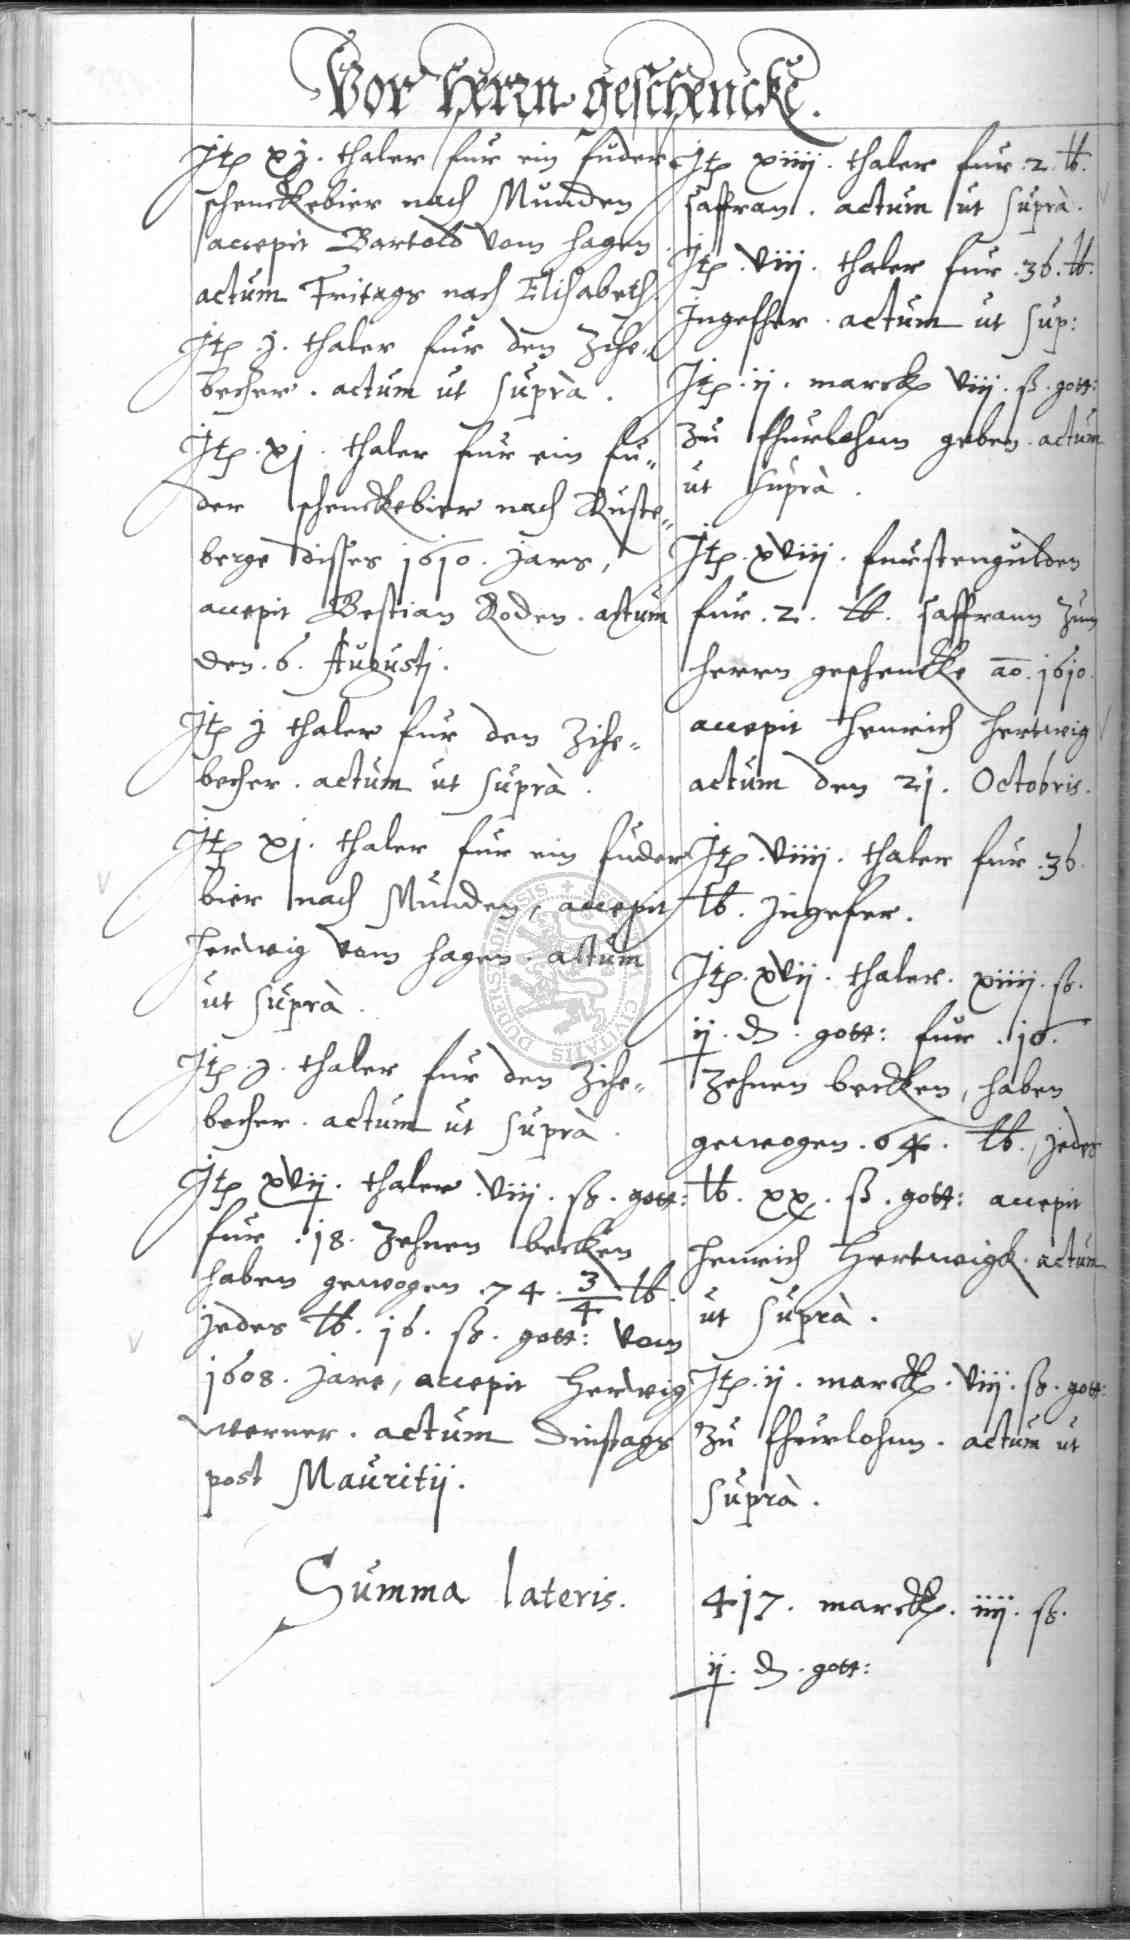 Vor Herrn geschencke.
Itp xj. thaler fur ein fuder
schenckebier nach Munden
accepit Bartold vom Hagen
actum Fritags nach Elisabeth.
Itp j. thaler fur den Zihe-
becher. actum ut suprà.
Itp. xj. thaler fur ein fu-
der schenckebier nach Ruste-
berge disses 1610. jars,
accepit Bestian Roden. actum
den. 6. Augustj.
Itp j thaler fur den Zihe-
becher. actum ut suprà.
Itp xj. thaler fur ein fuder
bier nach Munden, accepit
Herwig vom Hagen. actum
ut suprà.
Itp. j. thaler fur den Zihe-
becher. actum ut suprà.
Itp xvij. thaler. viij. ß. gott:
fur. 18. Zehnen becken
haben gewogen. 74. 3/4 lb.
jedes lb. 16. ß. gott: vom
1608. jare, accepit Herwig
werner. actum Dinstags
post Mauritij.
Itp xiiij. thaler fur. 2. lb.
saffran. actum ut suprà.
Itp. viij. thaler fur. 36. lb.
Ingefher. actum ut sup:
Itp. ij. marck viij. ß. gott:
zu fhurlohnn geben. actum
ut suprà.
Itp. xviij. furstengulden
fur. 2. lb. saffrann zum
herrn geschencke ao. 1610.
accepit Henrich Hertwig
actum den 21. Octobris.
Itp. viiij. thaler fur. 36.
lb. Ingefer.
Itp. xvij. thaler. xiiij. ß.
ij. d. gott: fur. 16.
Zehnen becken, haben
gewogen. 64. lb., jedes
lb. xx. ß. gott: accepit
Henrich Hertwigk. actum
ut suprà.
Itp. ij. marck. viij. ß. gott:
zu fhurlohnn. actum ut
suprà.
Summa lateris. 417. marck. iiij. ß.
ij. d. gott: